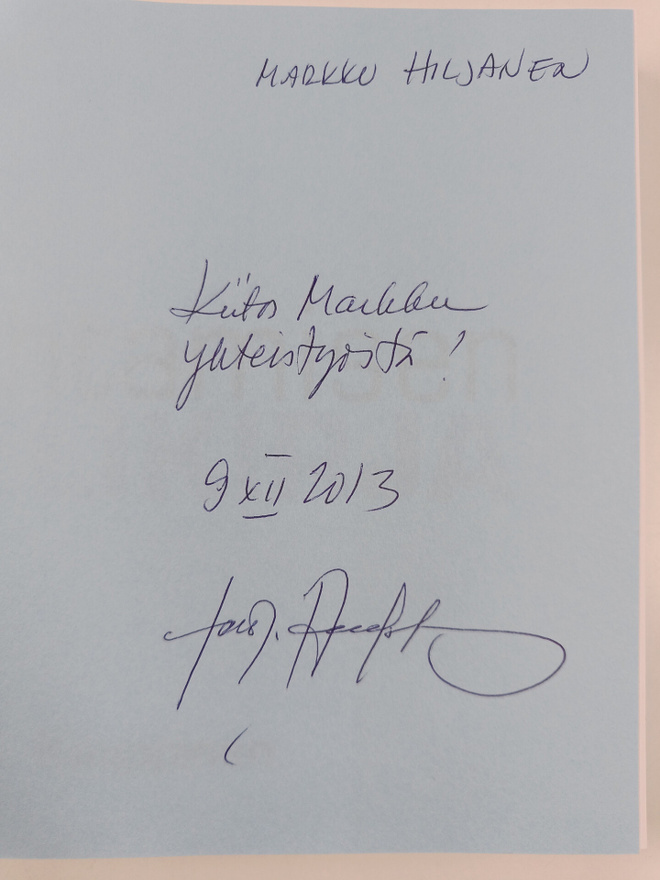 MARKKU HILJANEN
Kiitos Markku
yhteistyöstä!
9 XII 2013